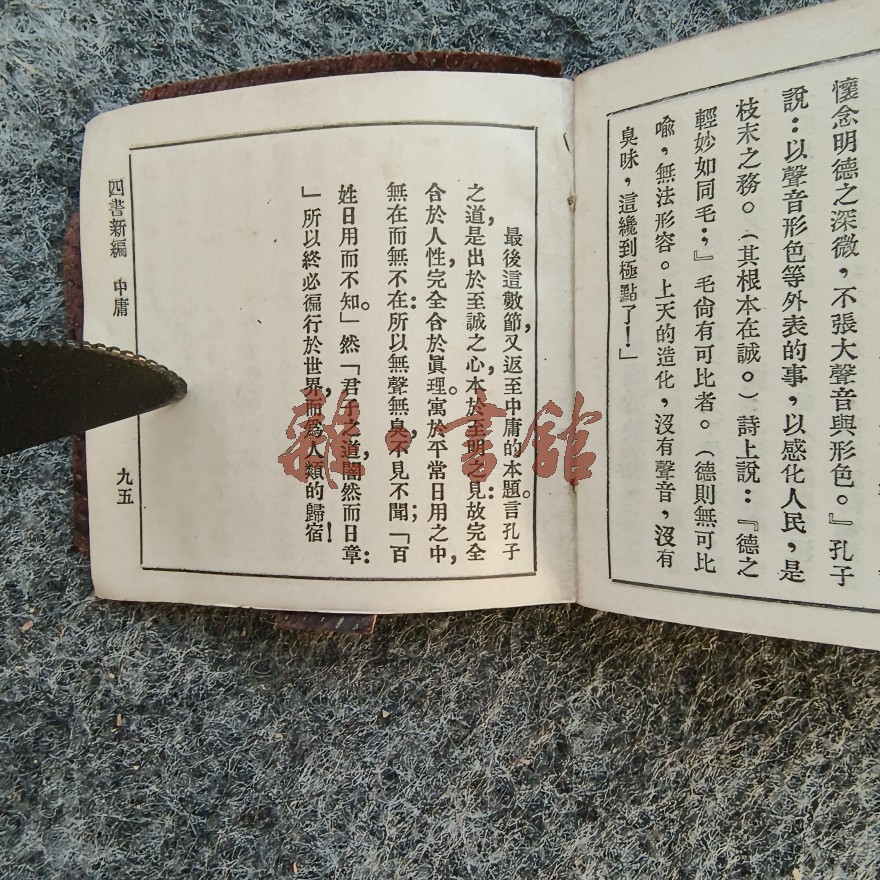 懷念明德之深微，不張大聲音與形色。』孔子
說：以聲音形色等外表的事，以感化人民，是
枝末之務。（其根本在誠。）詩上說：『德之
輕妙如同毛；』毛尚有可比者。（德則無可比
喩，無法形容。上天的造化，沒有聲音，沒有
臭味，這纔到極點了！」
最後這數節，又返至中庸的本題。言孔子
之道，是出於至誠之心，本於至明之見：故完全
合於人性，完全合於眞理。寓於平常日用之中，
無在而無不在：所以無聲無臭，不見不聞；「百
姓日用而不知。」然「君子之道，闇然而日章：
」所以終必徧行於世界，而爲人類的歸宿！
四書新編　中庸
九五
雜·書館